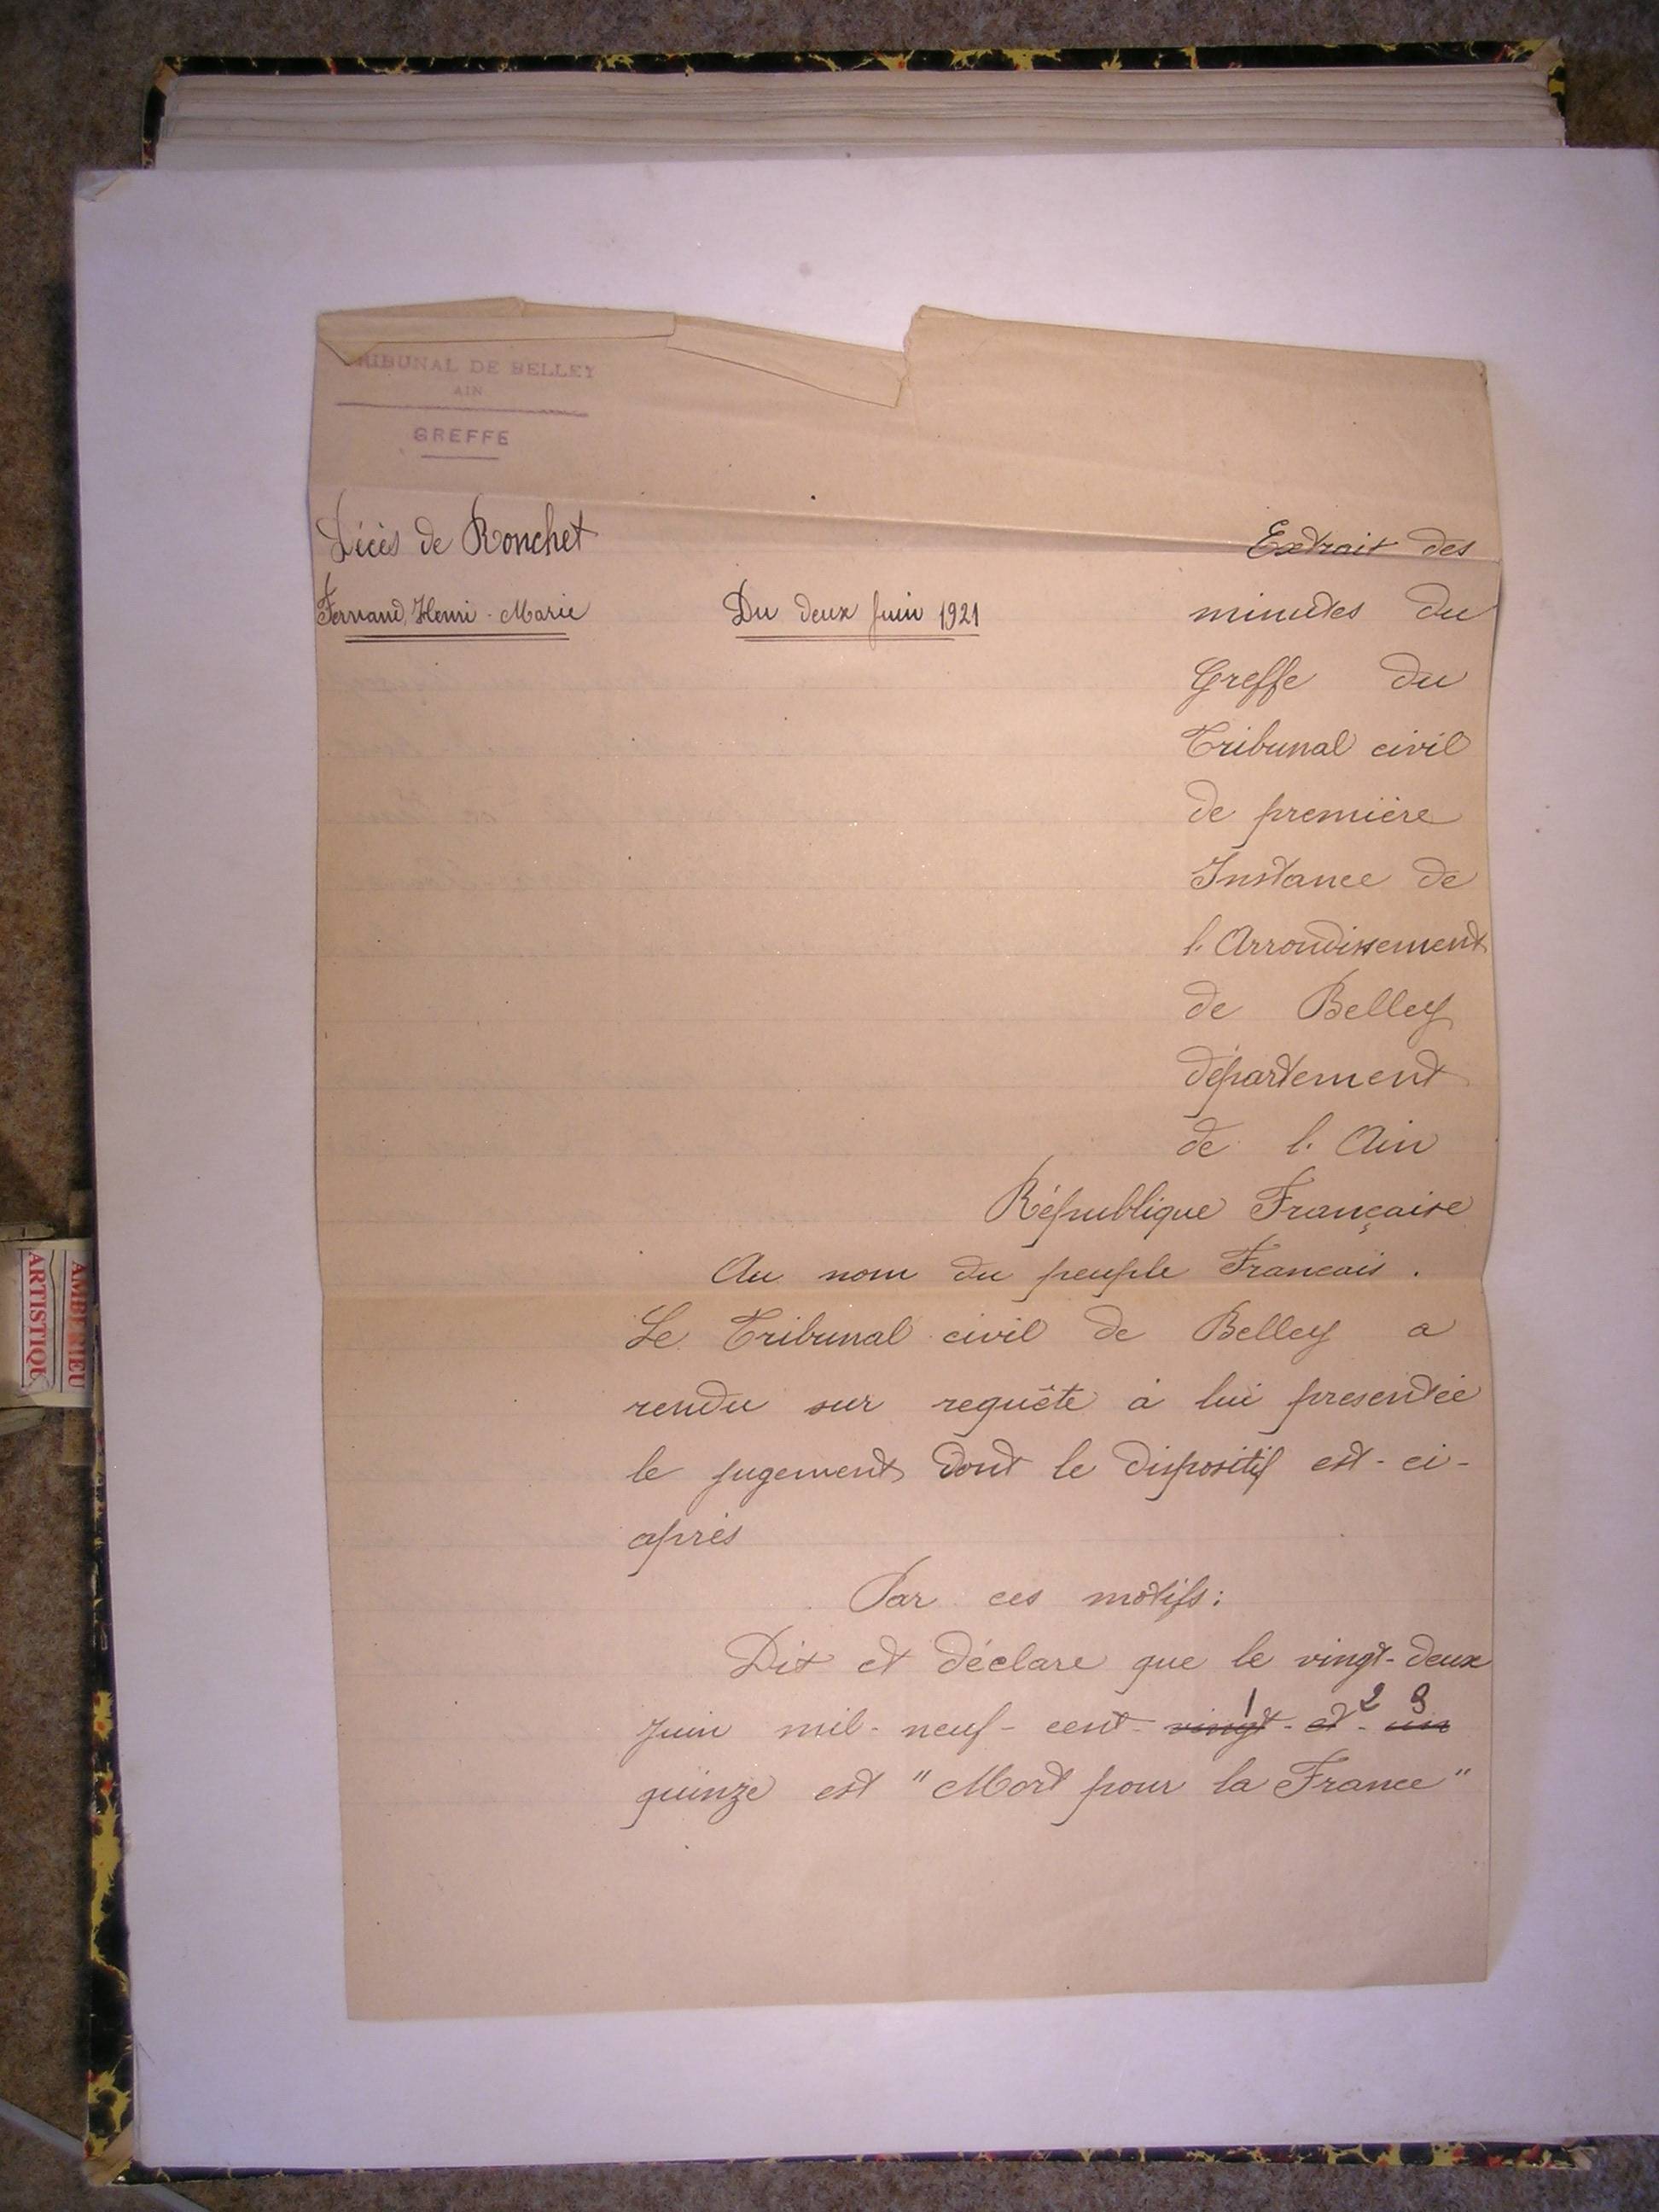 TRIBUNAL DE BELLEY
AIN
GREFFE
Décès de Ronchet
Fernand, Henri-Marie
Du deux Juin 1921
Extrait des
minutes du
Greffe du
Tribunal civil
de première
Instance de
l'Arrondissement
de Belley
département
de l'Ain
République Française
Au nom du peuple Francais.
Le Tribunal civil de Belley a
rendu sur requête à lui presentée
le jugement dont le dispositif est-ci-
après
Par ces motifs:
Dit et déclare que le vingt-deux
1 2 3
Juin mil-neuf-cent-vingt-et-un
quinze est "Mort pour la France"
AMBERIEU
ARTISTIQU